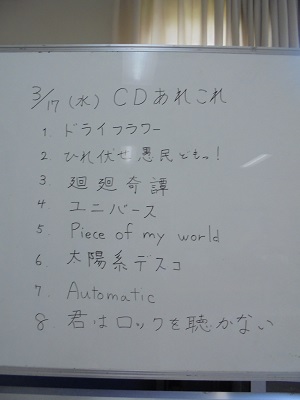 3/17(水) CDあれこれ
1. ドライフラワー
2. ひれ伏せ愚民どもっ!
3. 廻廻奇譚
4. ユニバース
5. Piece of my world
6. 太陽系デスコ
7. Automatic
8. 君はロックを聴かない